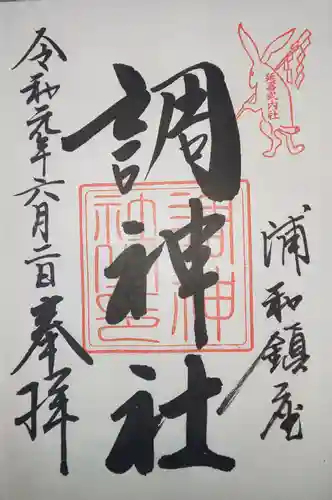 延喜式内社
浦和鎮座
調神社
令和元年六月二日
奉拝